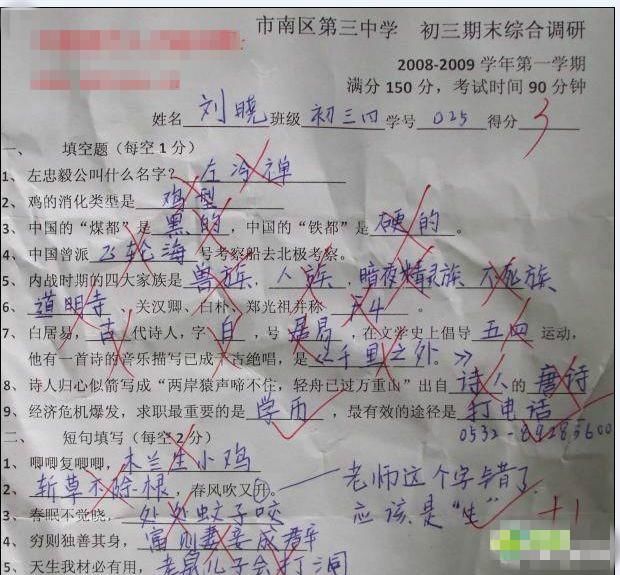 市南区第三中学 初三期末综合调研
2008-2009 学年第一学期
满分 150 分，考试时间 90 分钟
姓名 刘晓 班级 初三四 学号 025 得分 3
一、 填空题（每空 1 分）
1、左忠毅公叫什么名字？ 左冷禅
2、鸡的消化类型是 鸡型
3、中国的“煤都”是 黑的，中国的“铁都”是 硬的。
4、中国曾派 飞轮海 号考察船去北极考察。
5、内战时期的四大家族是 兽族，人族，暗夜精灵族 不死族
6、道明寺、关汉卿、白朴、郑光祖并称 F4。
7、白居易，古 代诗人，字 白，号 居易，在文学史上倡导 五四 运动，
他有一首诗的音乐描写已成千古绝唱，是《千里之外。》
8、诗人归心似箭写成“两岸猿声啼不住，轻舟已过万重山”出自 诗人 的 唐诗
9、经济危机爆发，求职最重要的是 学历，最有效的途径是 打电话
0532-89283600
二、 短句填写（每空 2 分）
1、唧唧复唧唧，木兰生小鸡
2、斩草不除根，春风吹又升。 老师这个字错了，
应该是“生” +1
3、春眠不觉晓，处处蚊子咬
4、穷则独善其身，富则妻妾成群
5、天生我材必有用，老鼠儿子会打洞